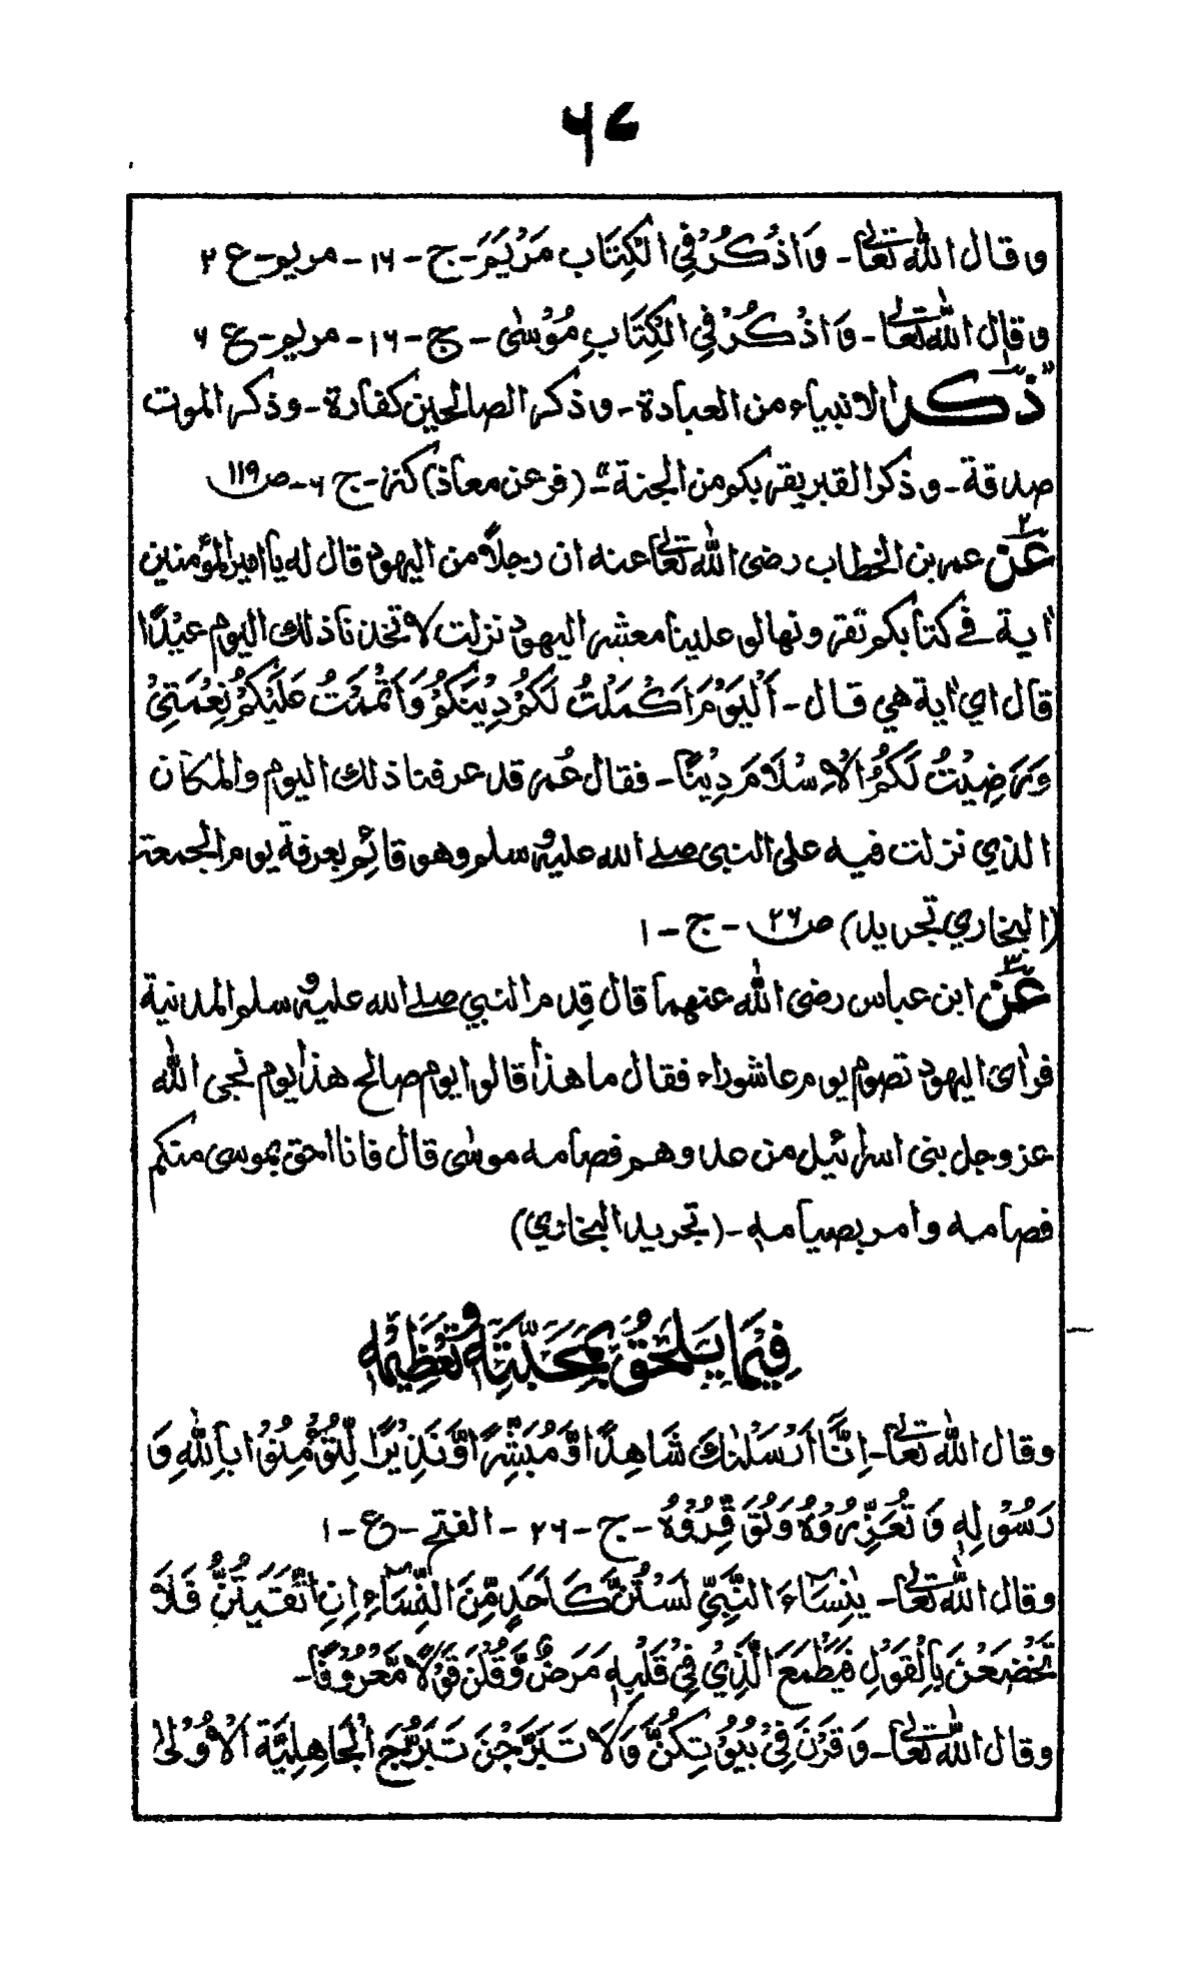 ۶۷
وقال الله تعالى - وَاذْكُرْ فِي الْكِتَابِ مَرْيَمَ - ج - ۱۶ - مريم - ع ۲
وقال الله تعالى - وَاذْكُرْ فِي الْكِتَابِ مُوْسٰى - ج - ۱۶ - مريم - ع ۶
۱ "ذكر الانبياء من العبادة - وذكر الصالحين كفارة - وذكر الموت
صدقة - وذكر القبر يقربكم من الجنة" - (فر عن معاذ) كنز - ج ۶ - ص ۱۱۹
۲ عَنْ عمر بن الخطاب رضى الله تعالى عنه ان رجلاً من اليهود قال له يا امير المؤمنين
اٰية في كتابكم تقرءونها لو علينا معشر اليهود نزلت لاتخذنا ذلك اليوم عيدًا
قال اي اٰية هي قال - اَلْيَوْمَ اَكْمَلْتُ لَكُمْ دِيْنَكُمْ وَاَتْمَمْتُ عَلَيْكُمْ نِعْمَتِيْ
وَرَضِيْتُ لَكُمُ الْاِسْلَامَ دِيْنًا - فقال عُمر قد عرفنا ذلك اليوم والمكان
الذي نزلت فيه على النبى صلے الله عليه وسلم وهو قائم بعرفة يوم الجمعة
(البخاري تجريد) ص ۲۶ - ج - ۱
۳ عَنْ ابن عباس رضى الله عنهما قال قدم النبي صلے الله عليه وسلم المدنية
فراٰى اليهود تصوم يوم عاشوراء فقال ما هذا قالوا يوم صالح هذا يوم نجى الله
عز وجل بنى اسرائيل من عدوهم فصامه موسٰى قال فانا احق بموسى منكم
فصامه وامر بصيامه - (تجريد البخاري)
فِيْمَا يَلْحَقُ بِمَحَبَّتِهٖ وَتَعْظِيْمِهٖ
وقال الله تعالى - اِنَّا اَرْسَلْنٰكَ شَاهِدًا وَّمُبَشِّرًا وَّنَذِيْرًا لِّتُؤْمِنُوْا بِاللهِ وَ
رَسُوْلِهٖ وَتُعَزِّرُوْهُ وَتُوَقِّرُوْهُ - ج - ۲۶ - الفتح - ع - ۱
وقال الله تعالى - يٰنِسَآءَ النَّبِيِّ لَسْتُنَّ كَاَحَدٍ مِّنَ النِّسَآءِ اِنِ اتَّقَيْتُنَّ فَلَا
تَخْضَعْنَ بِالْقَوْلِ فَيَطْمَعَ الَّذِيْ فِيْ قَلْبِهٖ مَرَضٌ وَّقُلْنَ قَوْلًا مَّعْرُوْفًا -
وقال الله تعالى - وَقَرْنَ فِيْ بُيُوْتِكُنَّ وَلَا تَبَرَّجْنَ تَبَرُّجَ الْجَاهِلِيَّةِ الْاُوْلٰى